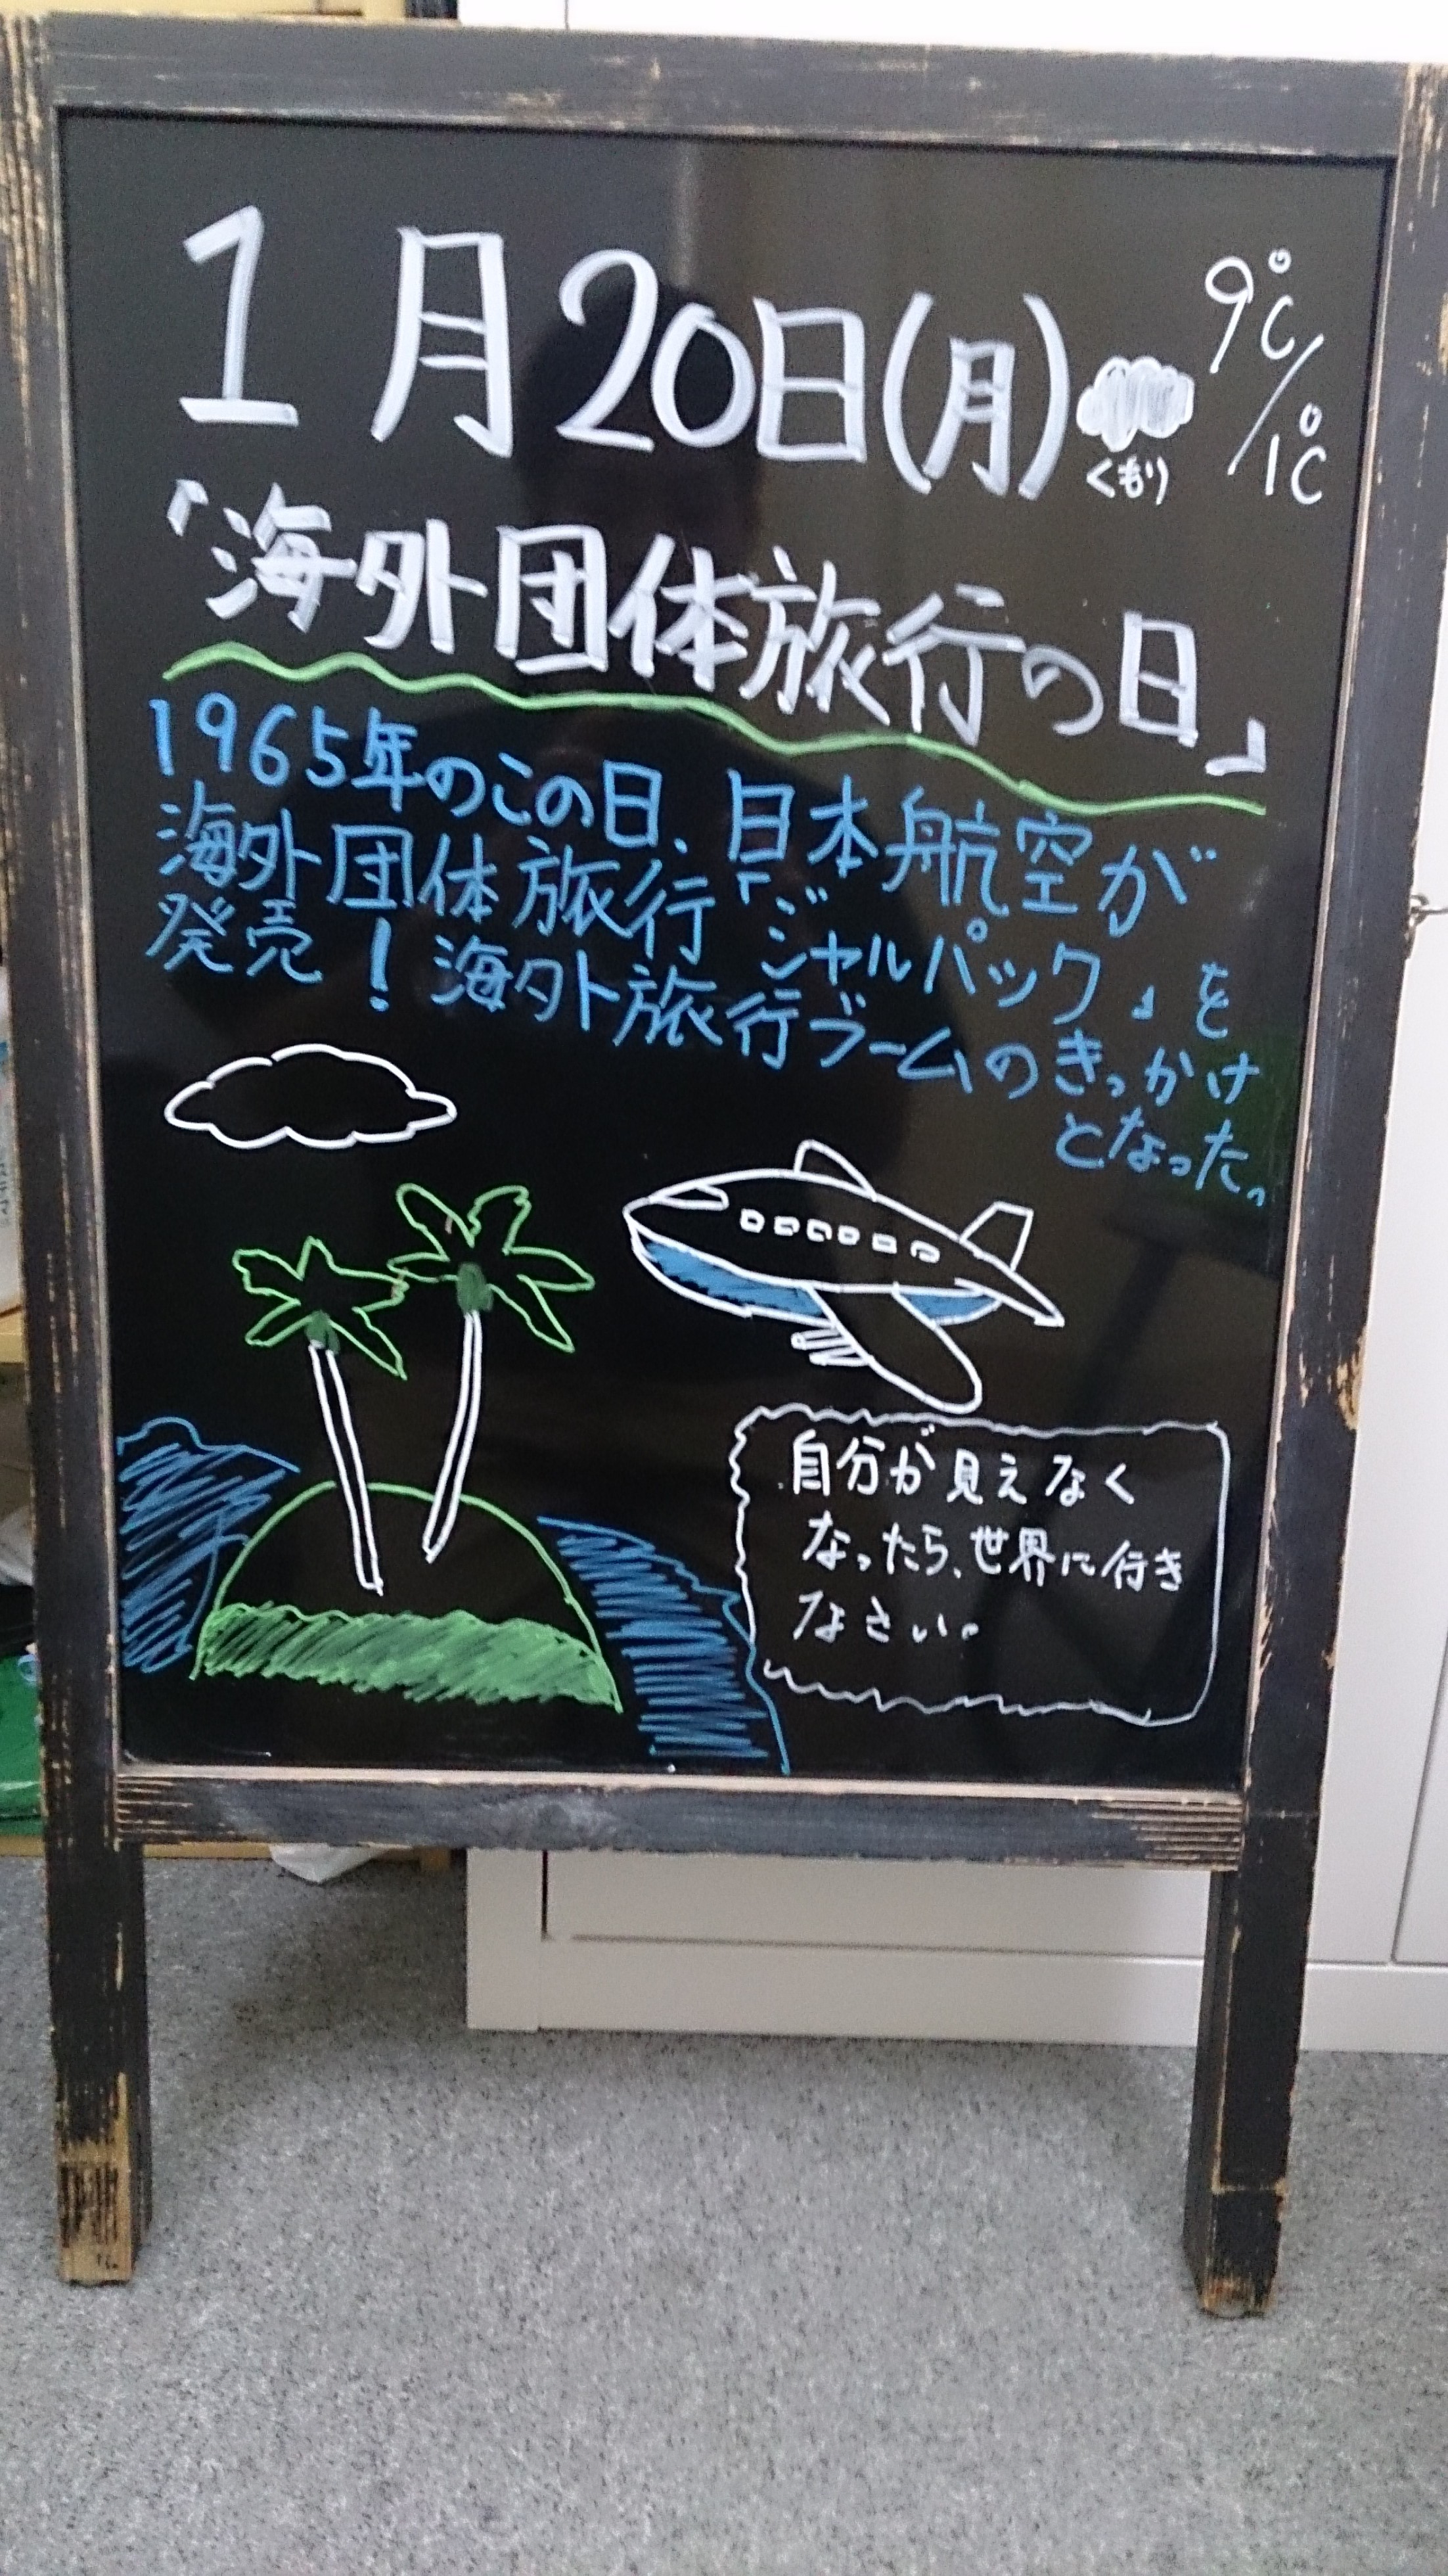 1月20日(月)
くもり
9℃/1℃
「海外団体旅行の日」
1965年のこの日、日本航空が
海外団体旅行「ジャルパック」を
発売!海外旅行ブームのきっかけ
となった。
自分が見えなく
なったら、世界に行き
なさい。